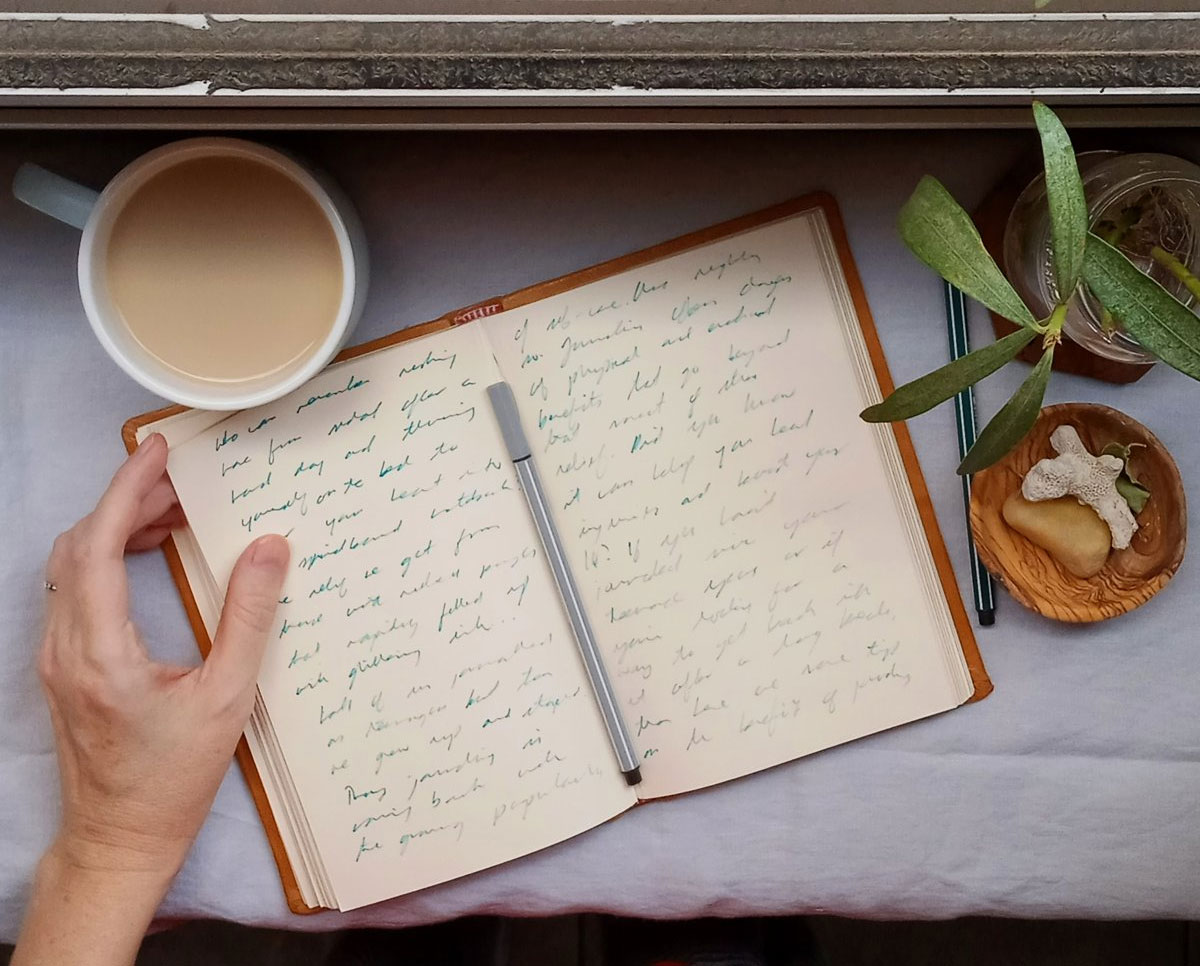 Who can remember rushing
home from school after a
hard day and throwing
yourself on the bed to
your heart into
spiralbound notebook.
we rely we get from
those and
that rapidly filled up
with glittering ink...
Lots of us journaled
as teenagers but then
we grew up and stopped
Now journaling is
coming back with
the growing popularity
of self-care. Has nightly
so. Journaling offers dozens
of physical and emotional
benefits that go beyond
that moment of stress
relief. Did you know
it can help you heal
injuries and boost your
IQ? If you haven't
journaled since your
teenage years or if
you're looking for a
way to get back into
it after a long break,
then here are some tips
on the benefits of